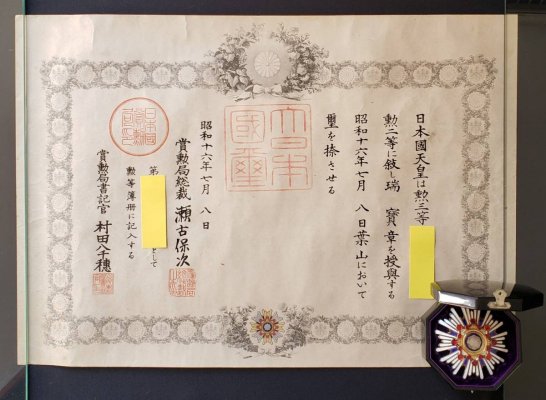 日本國天皇は勲三等
勲二等に敍し瑞寶章を授與する
昭和十六年七月八日葉山において
璽を捺させる
大日本
國璽
昭和十六年七月八日
賞勲局総裁瀬古保次
第
として
勲等簿冊に記入する
賞勲局書記官村田八千穂
日本國
賞勲
局印